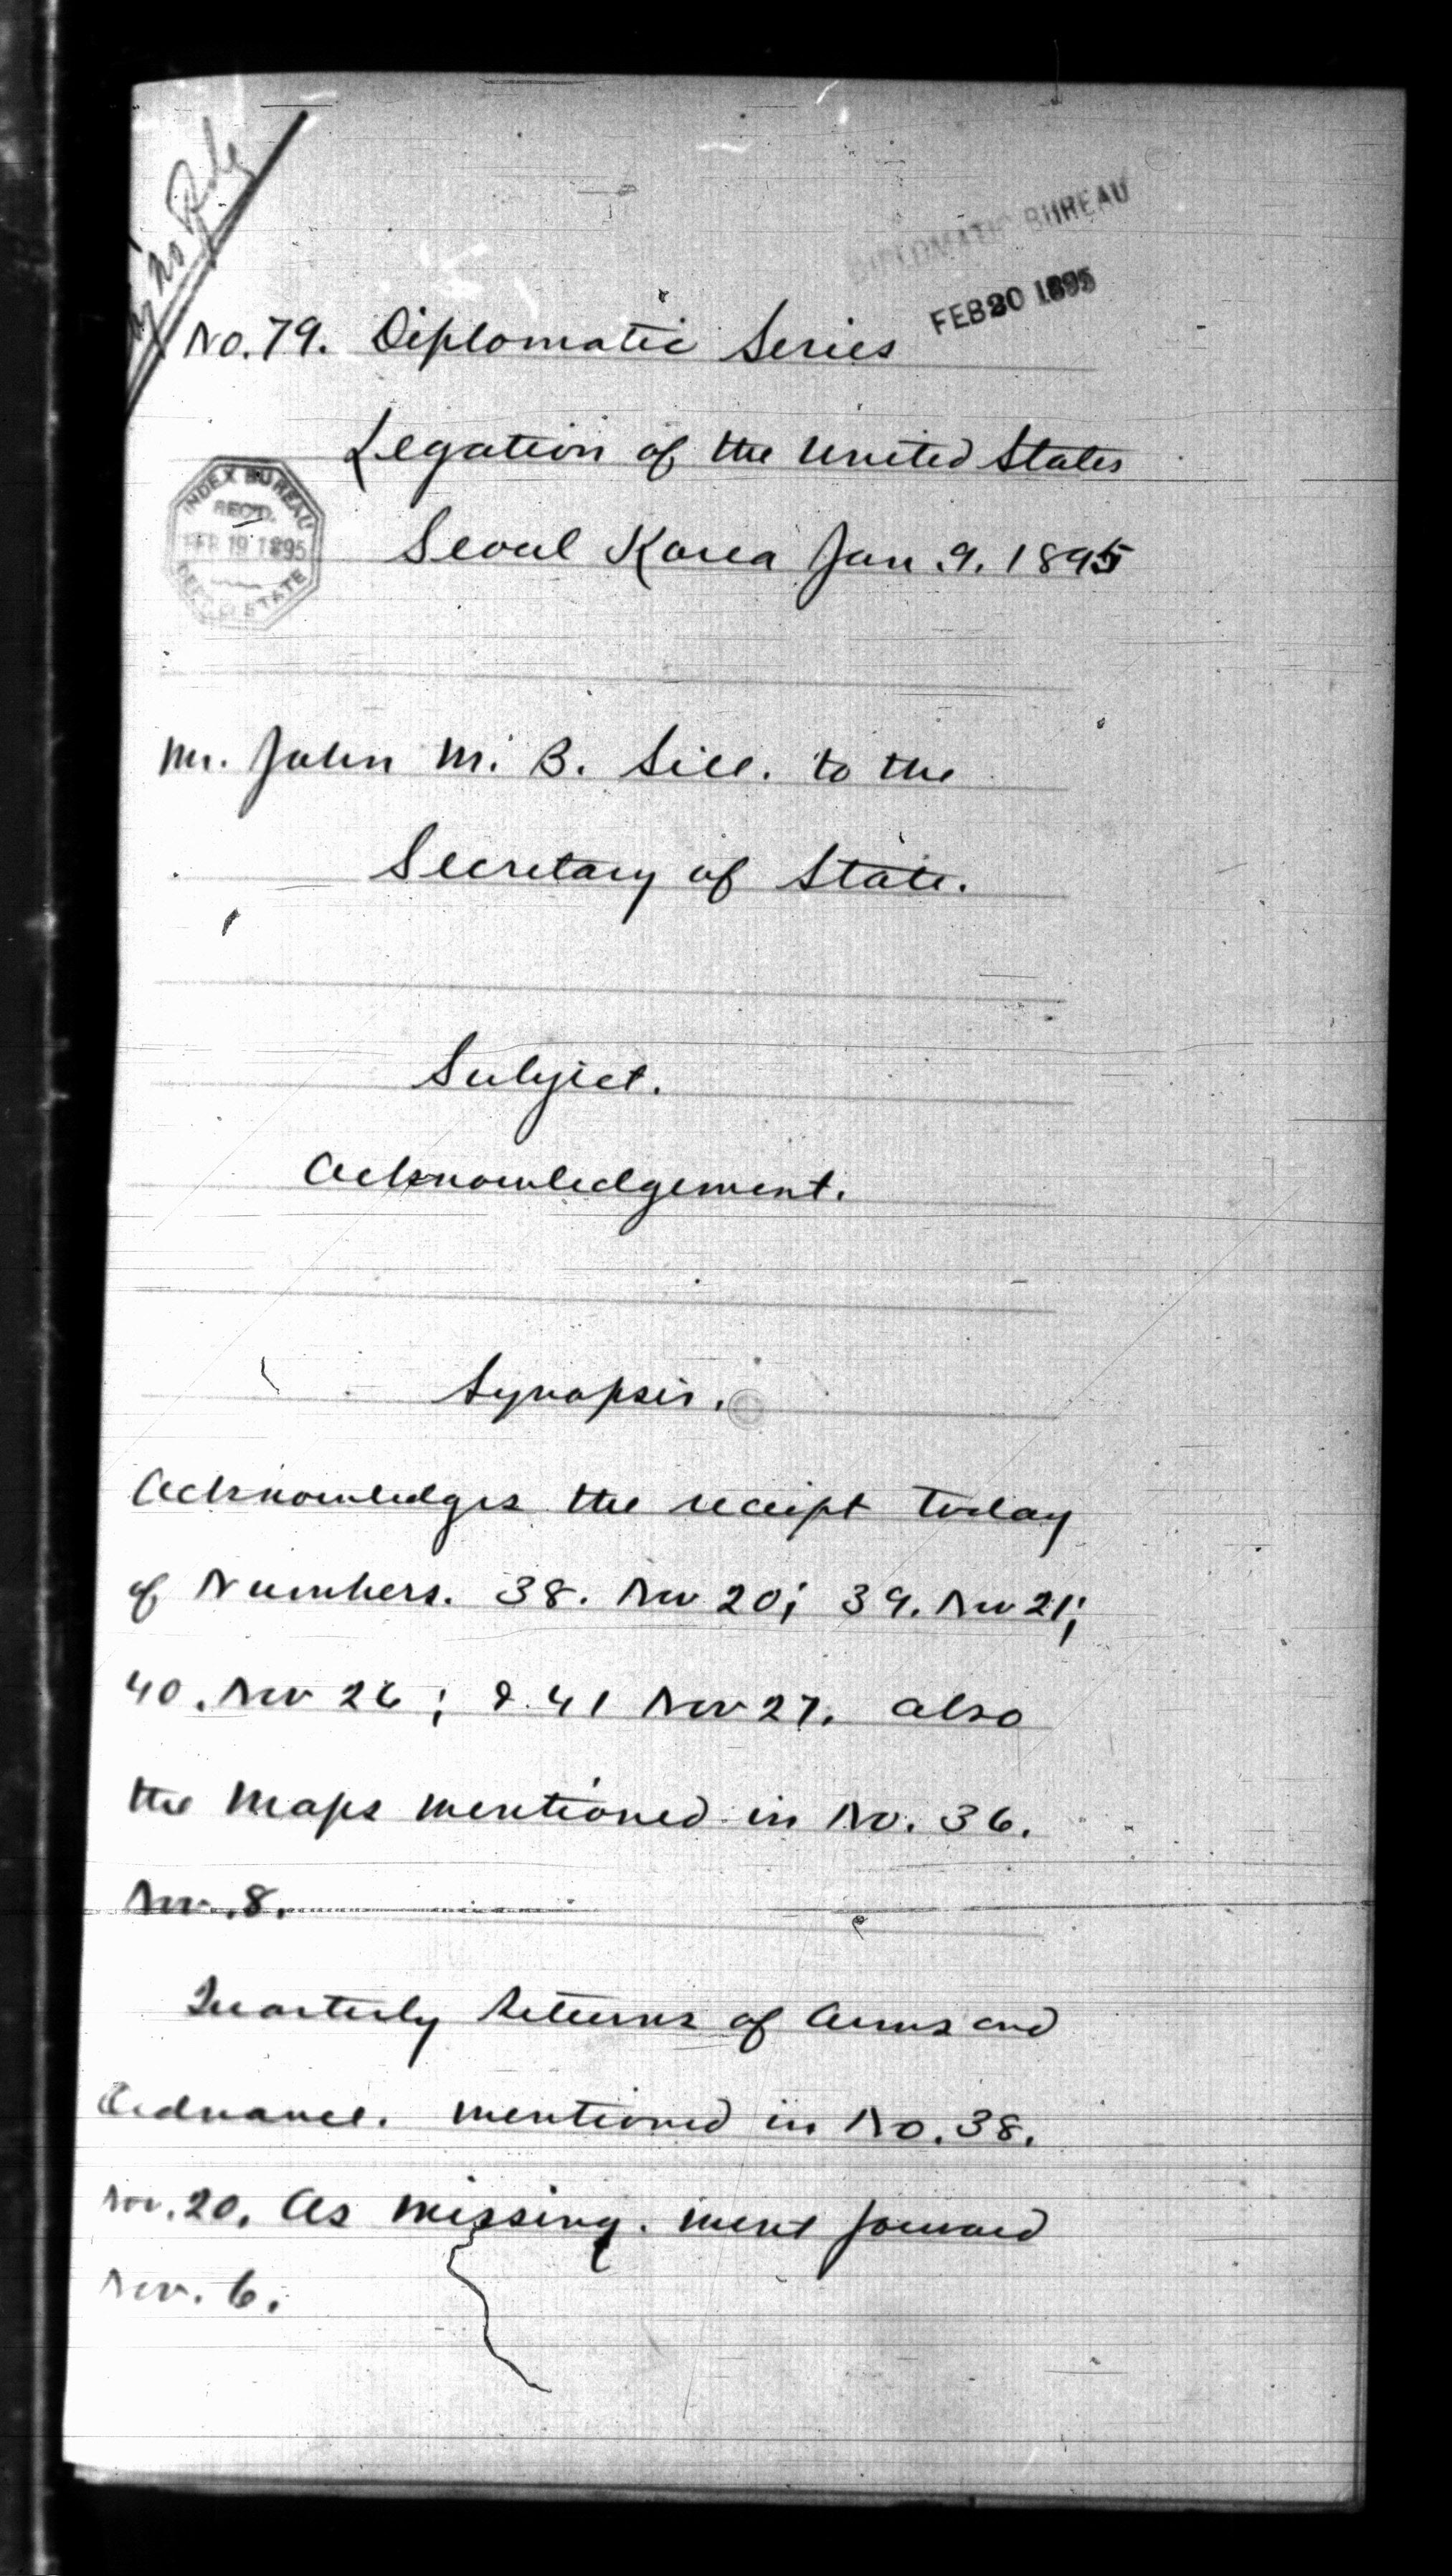 DIPLOMATIC BUREAU
FEB 20 1895
No. 79. Diplomatic Series
Legation of the United States
INDEX BUREAU
REC'D.
FEB 19 1895
DEPT. OF STATE
Seoul Korea Jan. 9. 1895
Mr. John M. B. Sill. to the
Secretary of State.
Subject.
Acknowledgement.
Synopsis.
Acknowledges the receipt today
of Numbers. 38. Nov 20; 39. Nov 21;
40. Nov 26; & 41 Nov 27. also
the Maps mentioned in No. 36.
Nov. 8.
Quarterly Returns of Arms and
Ordnance. mentioned in No. 38.
Nov. 20. As missing. went forward
Nov. 6.